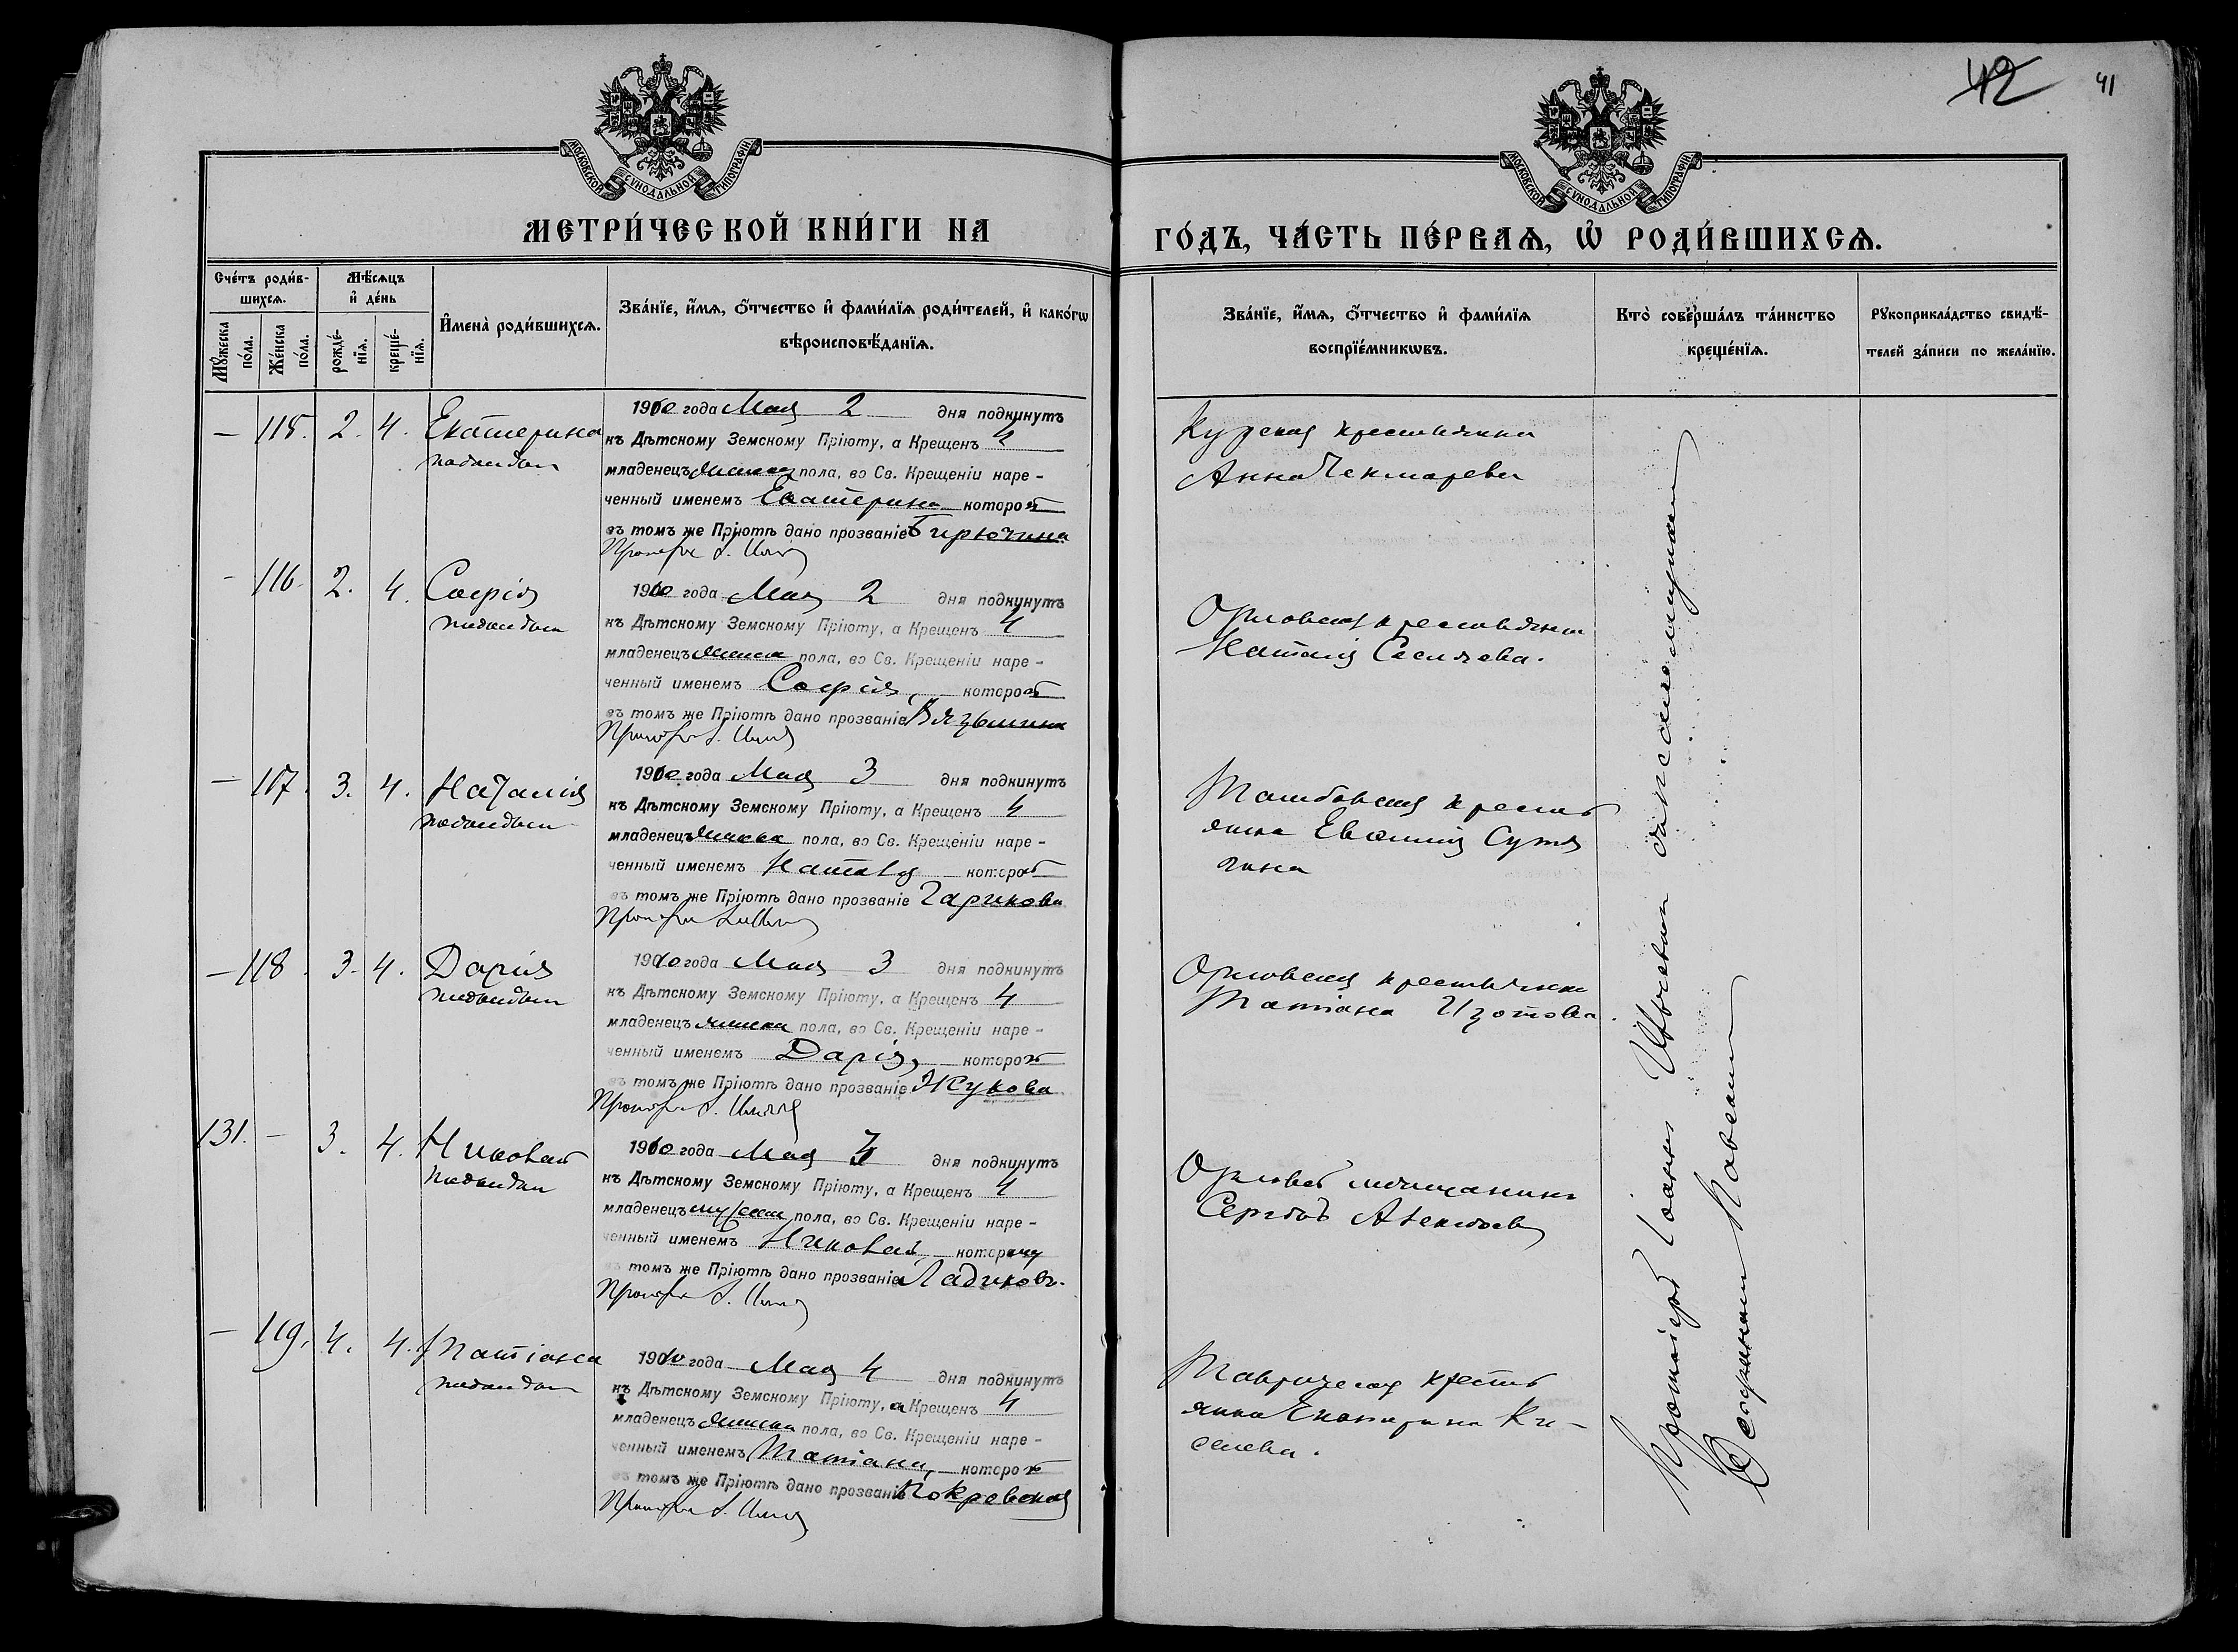 42 41
МОСКОВСКОЙ СУНОДАЛЬНОЙ ТИПОГРАФІИ
МОСКОВСКОЙ СУНОДАЛЬНОЙ ТИПОГРАФІИ
МЕТРИ́ЧЕСКОЙ КНИ́ГИ НА ГО́ДЪ, ЧА́СТЬ ПЕ́РВАѦ, Ѡ҆ РОДИ́ВШИХСѦ.
Сче́тъ роди́в-
шихсѧ.
Мꙋ́жеска по́ла.
Же́нска по́ла.
Мѣ́сѧцъ
и҆ де́нь
рожде́-
нїѧ.
креще́-
нїѧ.
И҆мена̀ роди́вшихсѧ.
Зва́нїе, и҆́мѧ, ѻ҆́тчество и҆ фами́лїѧ роди́телей, и҆ како́гѡ
вѣроисповѣ́данїѧ.
Зва́нїе, и҆́мѧ, ѻ҆́тчество и҆ фами́лїѧ
воспрїе́мникѡвъ.
Кто̀ соверша́лъ та́инство
креще́нїѧ.
Рꙋкоприкла́дство свидѣ́-
телей за́писи по жела́нїю.
— 115. 2. 4. Екатерина
1910 года Мая 2 дня подкинутъ
къ Дѣтскому Земскому Пріюту, а Крещенъ 4
младенецъ женска пола, во Св. Крещеніи наре-
ченный именемъ Екатерина которой
въ томъ же Пріютѣ дано прозваніе Бирючина
Курская крестьянка
Анна Чекмарева
— 116. 2. 4. Софія
1910 года Мая 2 дня подкинутъ
къ Дѣтскому Земскому Пріюту, а Крещенъ 4
младенецъ женска пола, во Св. Крещеніи наре-
ченный именемъ Софія, которой
въ томъ же Пріютѣ дано прозваніе
Орловская крестьянка
Наталія
— 117. 3. 4. Наталія
1910 года Мая 3 дня подкинутъ
къ Дѣтскому Земскому Пріюту, а Крещенъ 4
младенецъ женска пола, во Св. Крещеніи наре-
ченный именемъ Наталія которой
въ томъ же Пріютѣ дано прозваніе Гарикова
Тамбовская кресть
янка Евфимія Сутя
гина
— 118. 3. 4. Дарія
1910 года Мая 3 дня подкинутъ
къ Дѣтскому Земскому Пріюту, а Крещенъ 4
младенецъ женска пола, во Св. Крещеніи наре-
ченный именемъ Дарія, которой
въ томъ же Пріютѣ дано прозваніе Жукова
Орловская крестьянка
Татіана Изотова.
131. — 3. 4. Николай
1910 года Мая 3 дня подкинутъ
къ Дѣтскому Земскому Пріюту, а Крещенъ 4
младенецъ мужеска пола, во Св. Крещеніи наре-
ченный именемъ Николай которому
въ томъ же Пріютѣ дано прозваніе Ладиковъ.
Орловскій мѣщанинъ
Сергѣй Алексѣевъ
— 119. 4. 4. Татіана
1910 года Мая 4 дня подкинутъ
къ Дѣтскому Земскому Пріюту, а Крещенъ 4
младенецъ женска пола, во Св. Крещеніи наре-
ченный именемъ Татіана, которой
въ томъ же Пріютѣ дано прозваніе Покровская
Таврическая кресть
янка Екатерина Ки-
селева.
Протоіерей Іоаннъ Цвѣтковъ съ псаломщикомъ